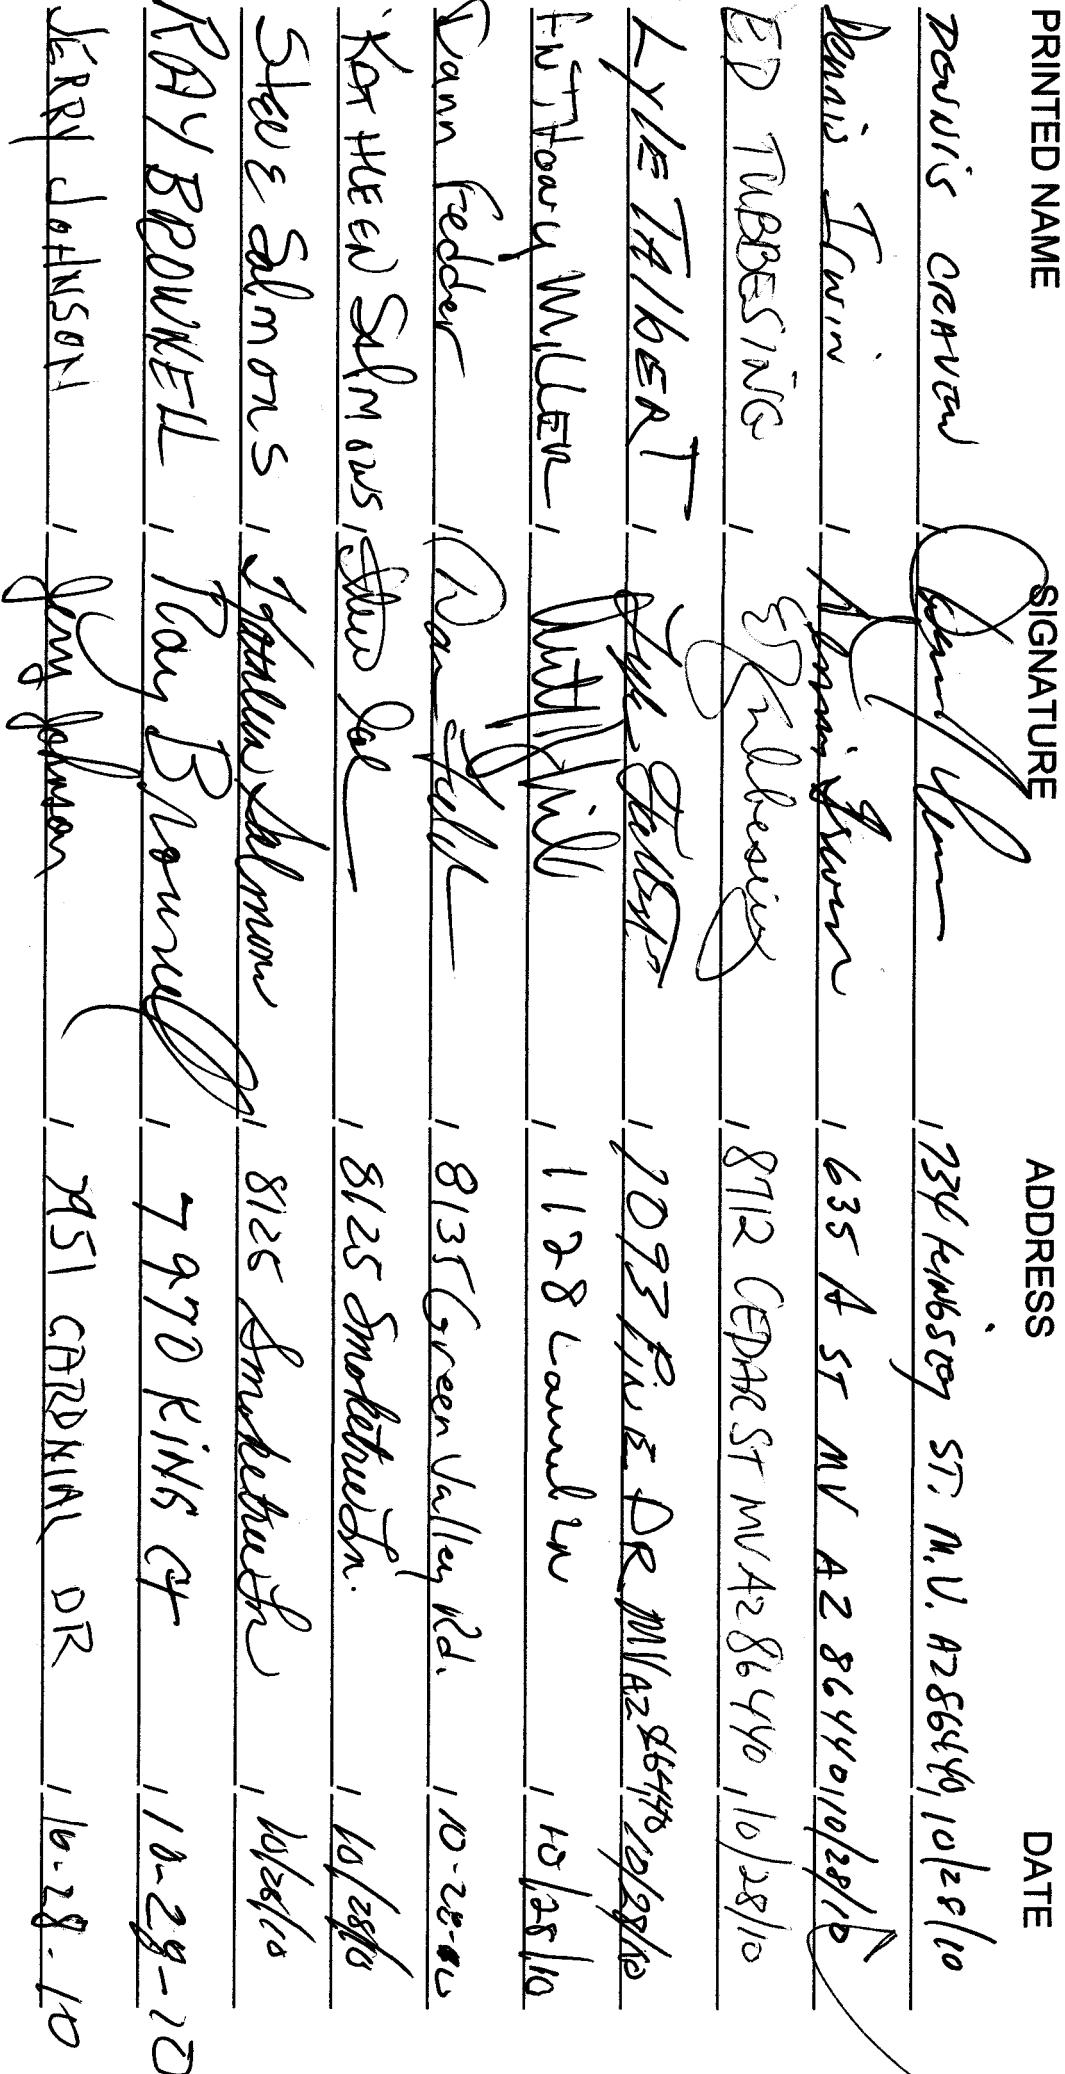 PRINTED NAME SIGNATURE ADDRESS DATE
DENNIS CRAVEN 734 ST. M.V. AZ 86440 10/28/10
Dennis Irwin Dennis Irwin 635 A ST MV AZ 86440 10/28/10
ED TUBBESING ED Tubbesing 8712 CEDAR ST MV AZ 86440 10/28/10
LYLE TAlbERT Lyle Talbert 1093 PiNE DR MV AZ 86440 10/28/10
ANTHony MiLLER 1128 Laurel Ln 10/28/10
Dann Fedder 8135 Green Valley Rd. 10-28-10
KATHLEEN SalMONS Steve Sal 8125 Smoketree Ln. 10/28/10
Steve Salmons Kathleen Salmons 8125 Smoketree Ln 10/28/10
RAY BROWNELL Ray Brownell 7970 KiNG Ct 10-29-10
JERRY JOHNSON Jerry Johnson 7951 CARDNIAL DR 10-28-10